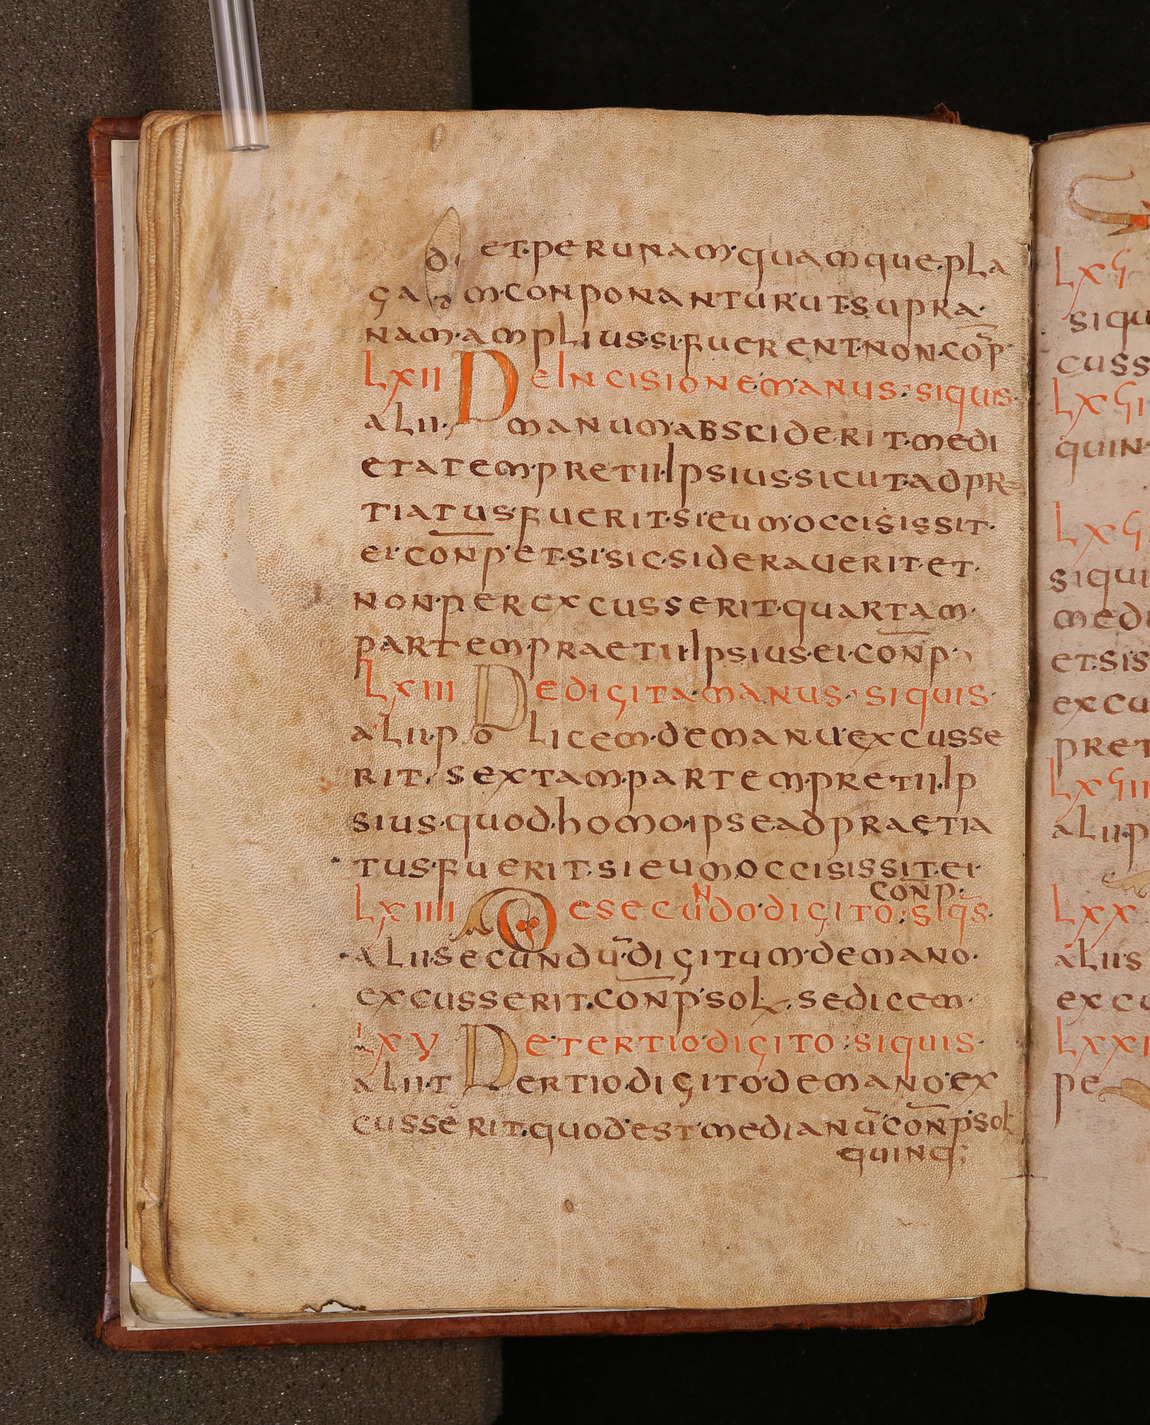 di et·per unam·quamque·pla
ga·m·conponantur·ut·supra·
nam·amplius·si·fuerent·non·co͞p·
LXII De Incisione·manus: siquis·
alii· manum·abscideri t·medi
etatem·pretii·Ipsius·sicut·adpr
tiatus·fuerit·si eum occisissit·
ei·co͞np·et·si·sic·sideraverit·et·
non·perexcusserit·quartam·
partem praetii·Ipsius·ei·co͞np·
LXIII De digita·manus· siquis·
alii·po licem·de manu·excusse
rit· sextam·partem·pretii·Ip
sius·quod·homo·ipse·adpraetia
tus·fuerit·si eum occisissit·ei·
co͞np·
LXIIII De secundo·digito: siq̄s·
alii secundū·digitum·demano·
excusserit·co͞np·sol· sedicem·
LXV De tertio·digito: siquis·
alii·t ertio·digito·demano·ex
cusserit·quod·est·medianū·co͞np·sol
quinq;
LXϚ
siqu
cuss
LXϚI
quin
LXϚI
siqui
medi
et·sis
excu
pret
LXϚIII
alii·p
LXX
alii s
excu
LXXI
pe